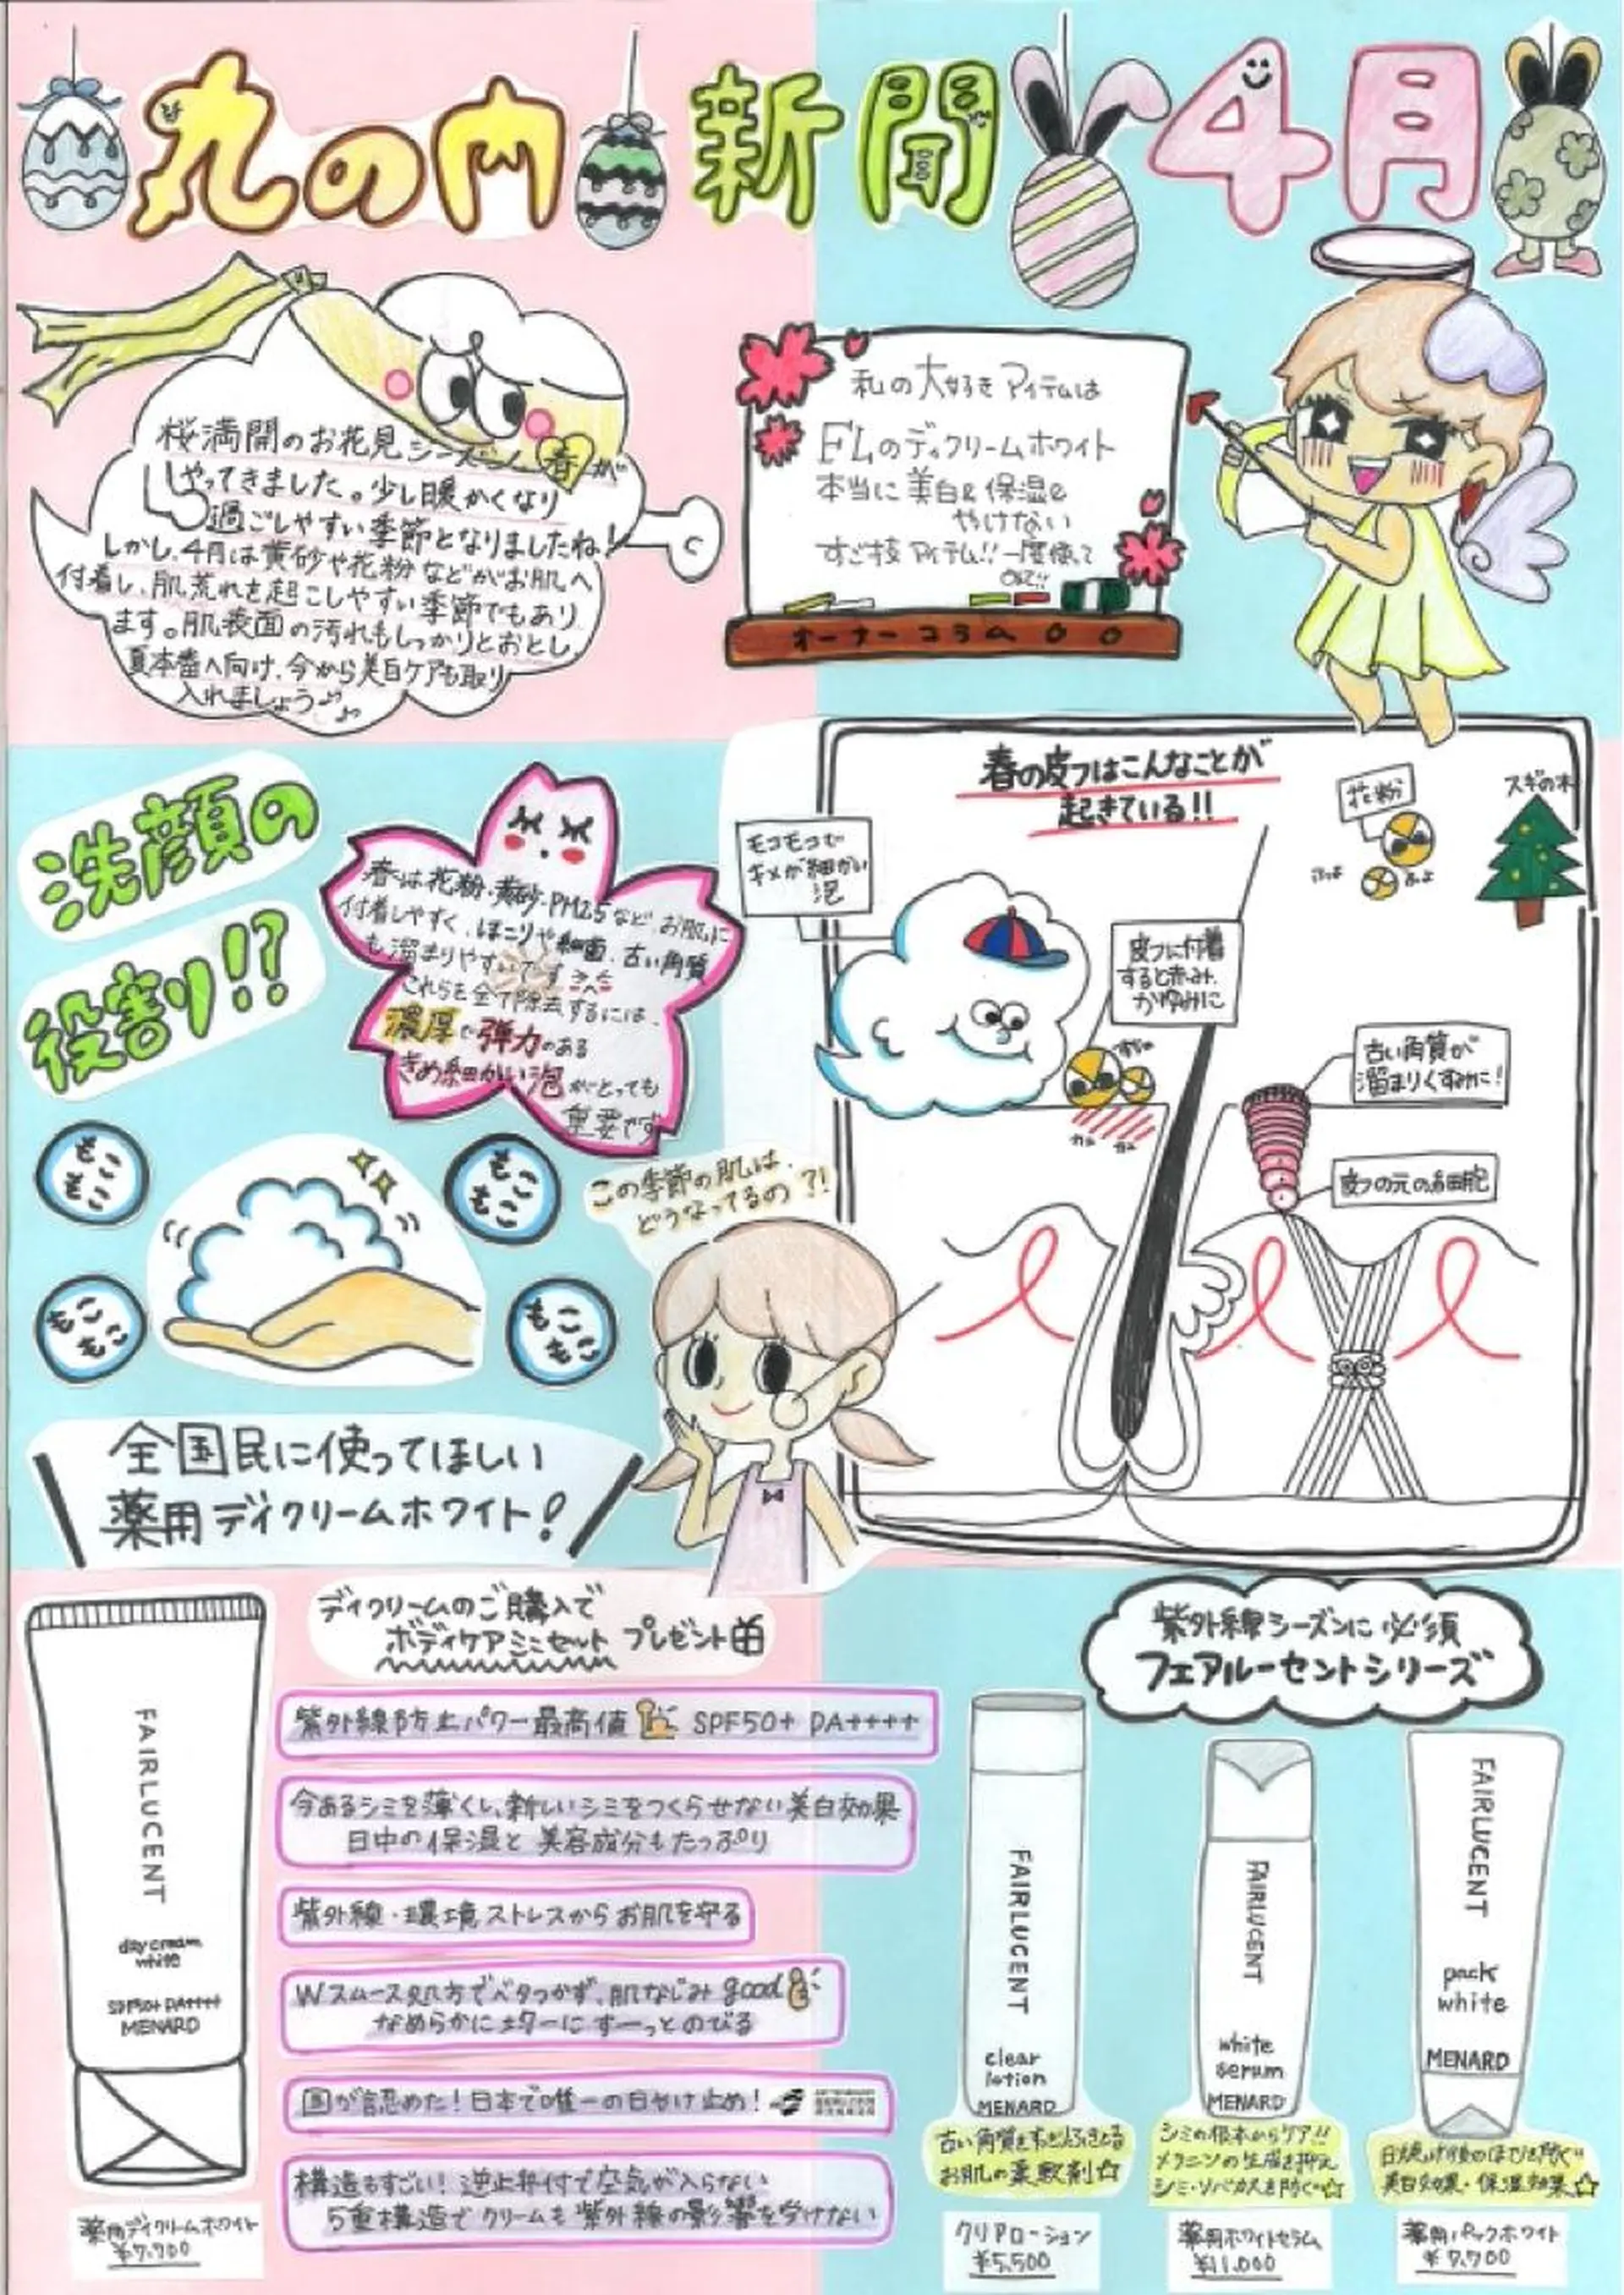 丸の内 新聞 4月
桜満開のお花見シーズン、春が
やってきました。少し暖かくなり
過ごしやすい季節となりましたね!
しかし、4月は黄砂や花粉などがお肌へ
付着し、肌荒れを起こしやすい季節でもあり
ます。肌表面の汚れもしっかりとおとし、
夏本番へ向け、今から美白ケアも取り
入れましょう♪
私の大好きアイテムは
FLのデイクリームホワイト
本当に美白&保湿&
やけない
すご技アイテム!!一度使って
みて!!
オーナーコラム
洗顔の
役割り!?
春は花粉・黄砂・PM2.5など、お肌に
付着しやすく、ほこりや細菌、古い角質
も溜まりやすいです
これらを全て除去するには、
濃厚で弾力のある
きめ細かい泡がとっても
重要です
もこもこ
もこもこ
もこもこ
もこもこ
春の皮フはこんなことが
起きている!!
花粉
スギの木
ふよ
ふよ
モコモコで
キメが細かい
泡
皮フに付着
すると赤み、
かゆみに
古い角質が
溜まりくすみに!
皮フの元の細胞
この季節の肌は、
どうなってるの?!
全国民に使ってほしい
薬用デイクリームホワイト!
デイクリームのご購入で
ボディケアミニセット プレゼント
紫外線防止パワー最高値 SPF50+ PA++++
今あるシミを薄くし、新しいシミをつくらせない美白効果
日中の保湿と美容成分もたっぷり
紫外線・環境ストレスからお肌を守る
Wスムース処方でベタつかず、肌なじみgood
なめらかに均一にすーっとのびる
国が認めた!日本で唯一の日やけ止め!
構造もすごい!逆止弁付で空気が入らない
5重構造でクリームも紫外線の影響を受けない
FAIRLUCENT
day cream
white
SPF50+ PA++++
MENARD
薬用デイクリームホワイト
¥7,700
紫外線シーズンに必須
フェアルーセントシリーズ
FAIRLUCENT
clear
lotion
MENARD
古い角質をすっとふきとる
お肌の柔軟剤☆
クリアローション
¥5,500
FAIRLUCENT
white
serum
MENARD
シミの根本からケア!!
メラニンの生成を抑え
シミ・ソバカスを防ぐ☆
薬用ホワイトセラム
¥11,000
FAIRLUCENT
pack
white
MENARD
日焼け後のほてりを防ぐ
美白効果・保湿効果☆
薬用パックホワイト
¥7,700